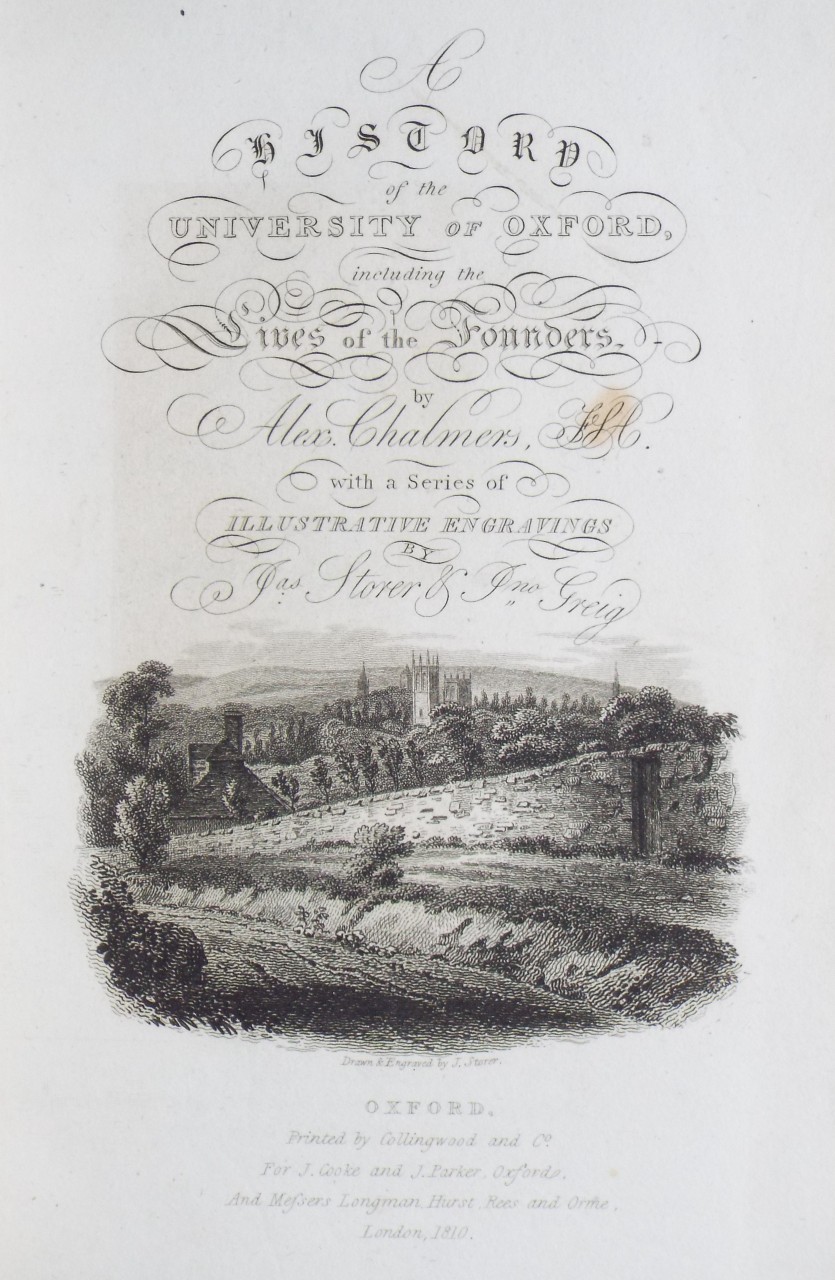 A
HISTORY
of the
UNIVERSITY OF OXFORD,
including the
Lives of the Founders.
by
Alex. Chalmers, FSA.
with a Series of
ILLUSTRATIVE ENGRAVINGS
BY
Jas. Storer & Jno. Greig
Drawn & Engraved by J. Storer.
OXFORD,
Printed by Collingwood and Co.
For J. Cooke and J. Parker, Oxford,
And Meſsers Longman Hurst Rees and Orme,
London, 1810.